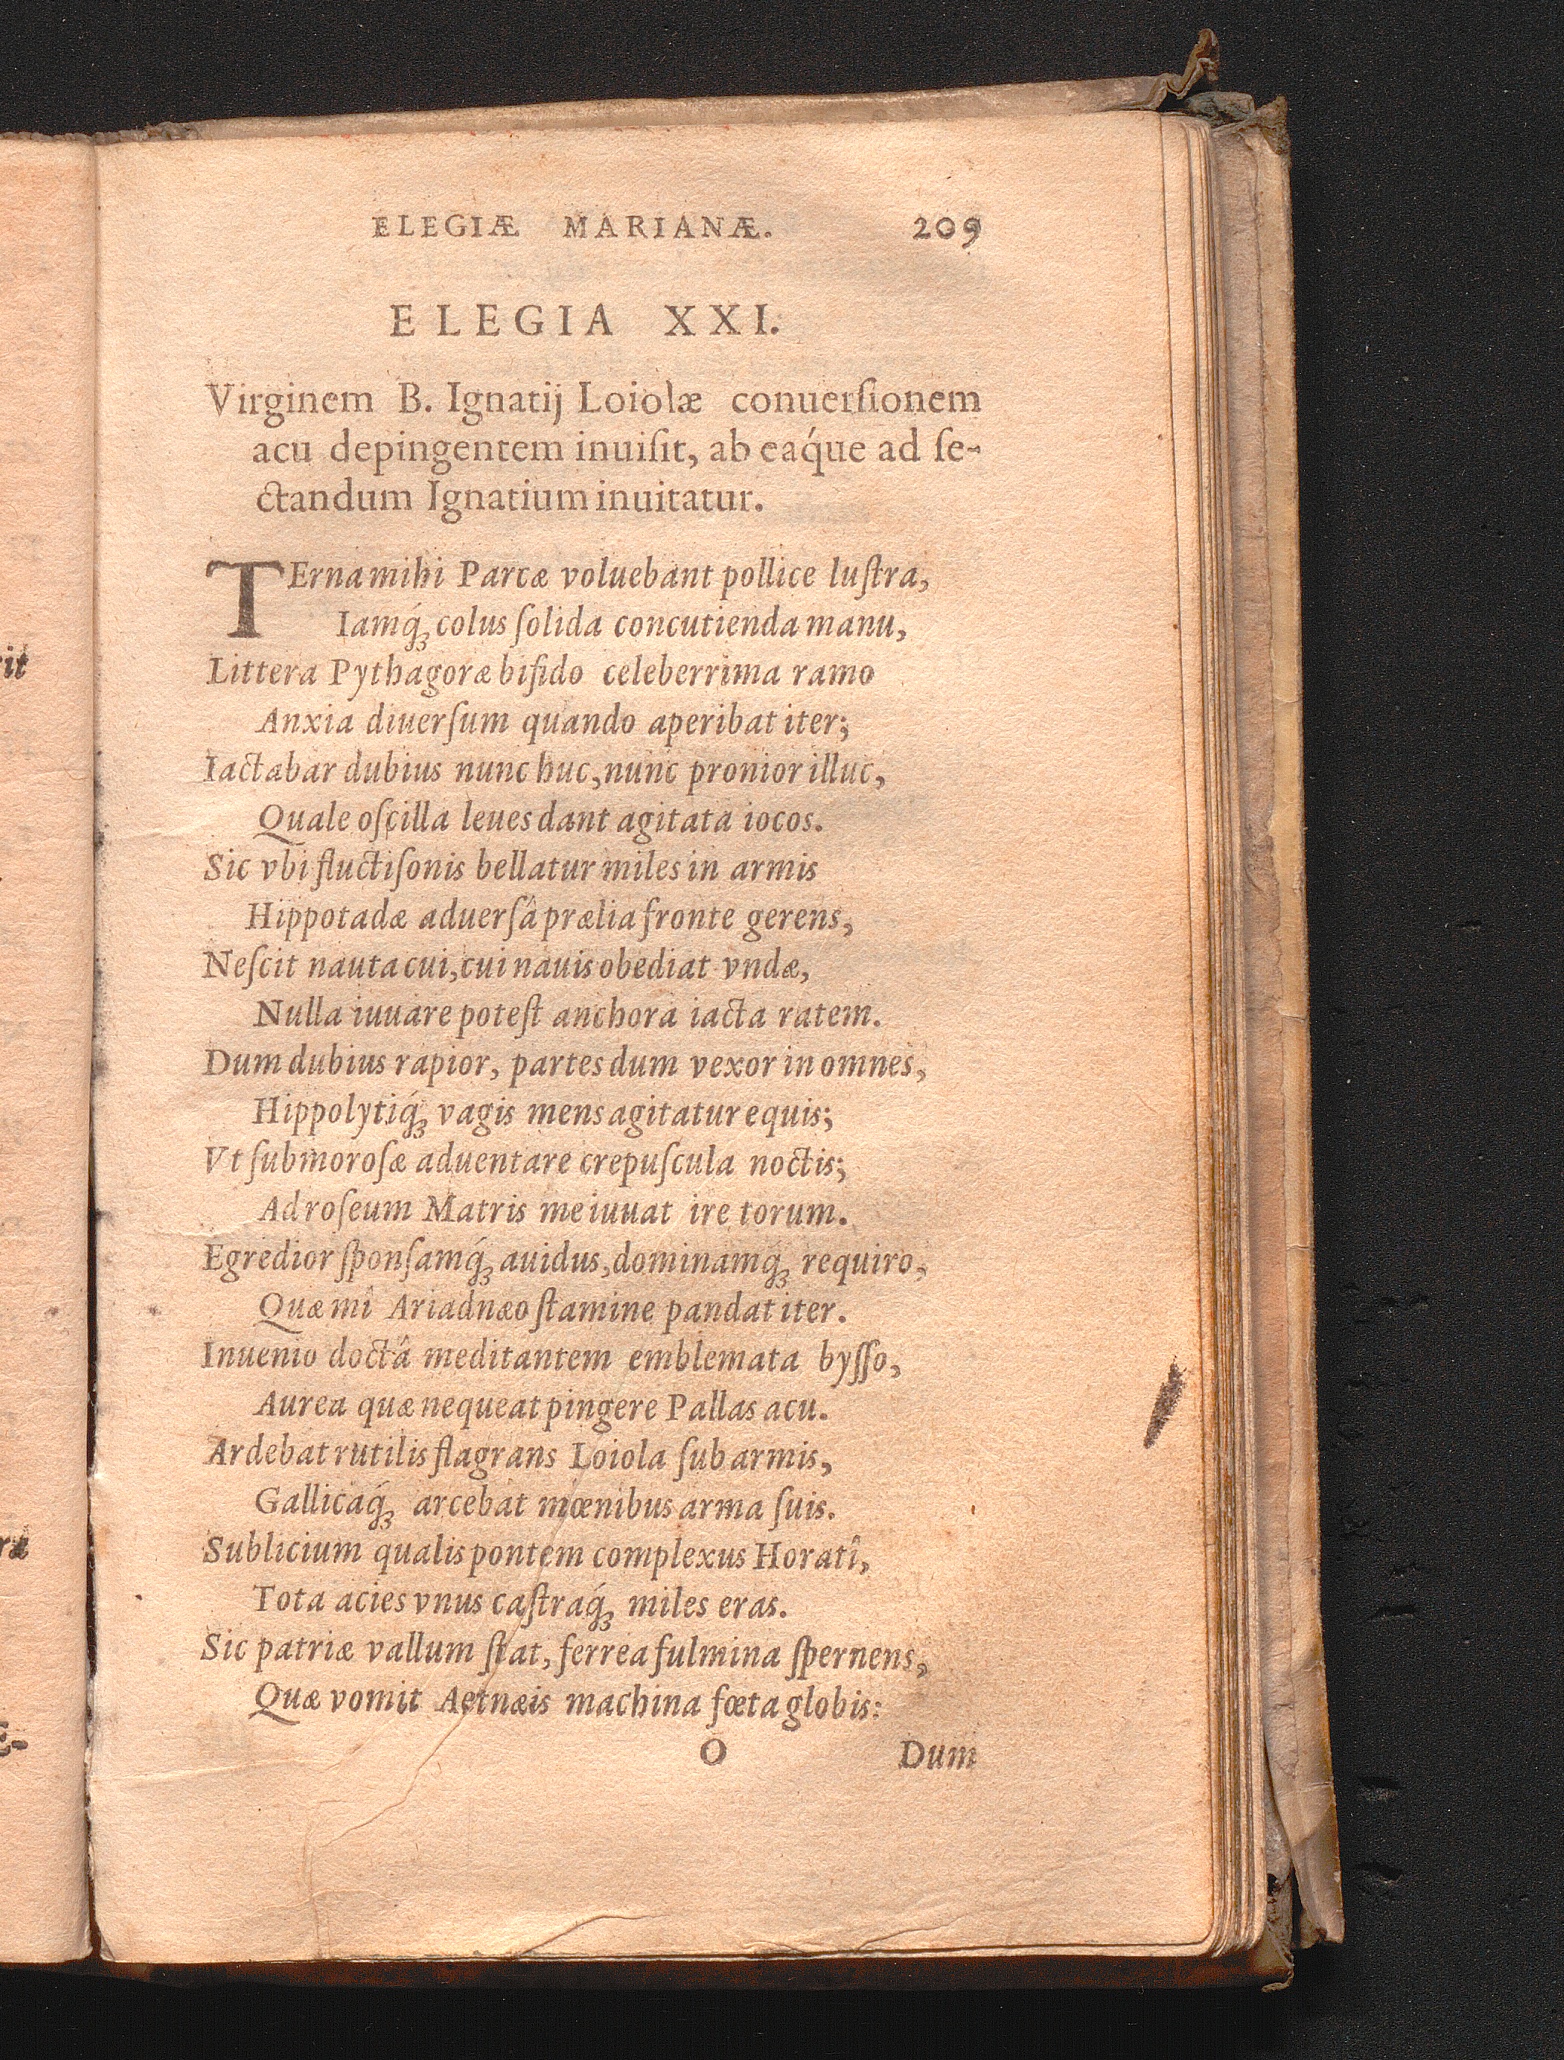 ELEGIÆ MARIANÆ. 209
ELEGIA XXI.
Virginem B. Ignatij Loiolæ conuerſionem
acu depingentem inuiſit, ab eaq́ue ad ſe-
ctandum Ignatium inuitatur.
TErna mihi Parcæ voluebant pollice luſtra,
Iamq́; colus ſolida concutienda manu,
Littera Pythagoræ bifido celeberrima ramo
Anxia diuerſum quando aperibat iter;
Iactabar dubius nunc huc, nunc pronior illuc,
Quale oſcilla leues dant agitata iocos.
Sic vbi fluctiſonis bellatur miles in armis
Hippotadæ aduerſâ prælia fronte gerens,
Neſcit nauta cui, cui nauis obediat vndæ,
Nulla iuuare poteſt anchora iacta ratem.
Dum dubius rapior, partes dum vexor in omnes,
Hippolytiq́; vagis mens agitatur equis;
Vt ſubmoroſæ aduentare crepuſcula noctis;
Ad roſeum Matris me iuuat ire torum.
Egredior ſponſamq́; auidus, dominamq́; requiro,
Quæ mî Ariadnæo ſtamine pandat iter.
Inuenio doctâ meditantem emblemata byſſo,
Aurea quæ nequeat pingere Pallas acu.
Ardebat rutilis flagrans Loiola ſub armis,
Gallicaq́; arcebat mœnibus arma ſuis.
Sublicium qualis pontem complexus Horatî,
Tota acies vnus caſtraq́; miles eras.
Sic patriæ vallum ſtat, ferrea fulmina ſpernens,
Quæ vomit Aetnæis machina fœta globis:
O Dum